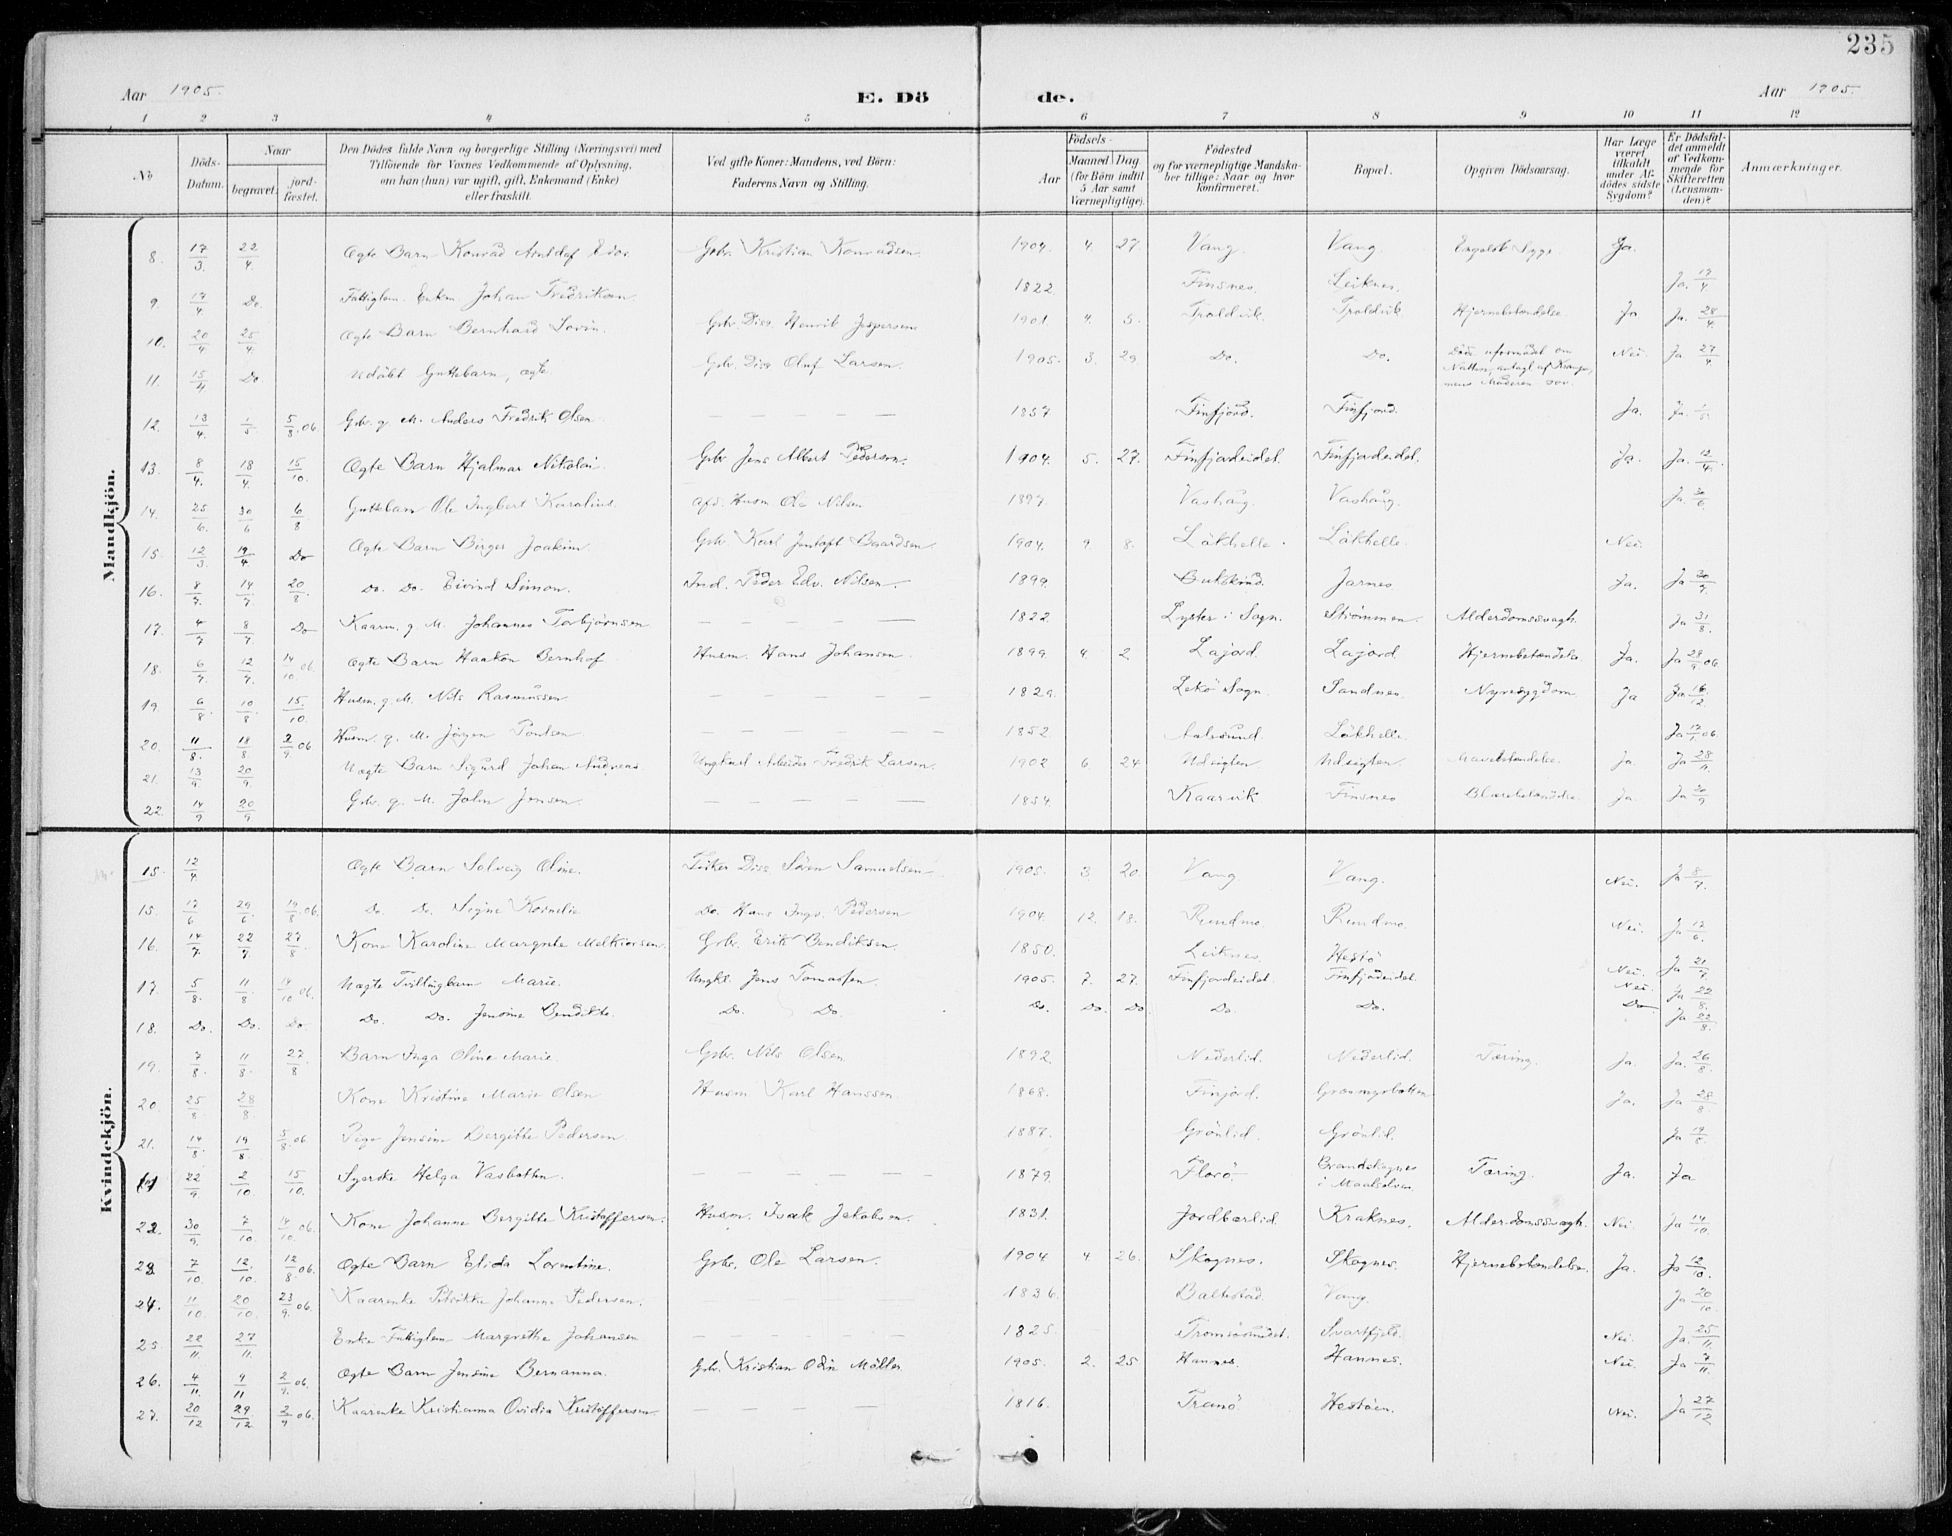 235
Aar 1905. E. Dö de. Aar 1905.
1 2 3 4 5 6 7 8 9 10 11 12
No Döds-Datum. Naar begravet. jord-fæstet. Den Dödes fulde Navn og borgerlige Stilling (Næringsvei) med Tilföiende for Voxnes Vedkommende af Oplysning, om han (hun) var ugift, gift, Enkemand (Enke) eller fraskilt. Ved gifte Koner: Mandens, ved Börn: Faderens Navn og Stilling. Födsels- Aar Maaned Dag (for Börn indtil 5 Aar samt Værnepligtige). Födested og for værnepligtige Mandska-ber tillige: Naar og hvor konfirmeret. Bopæl. Opgiven Dödsaarsag. Har Læge været tilkaldt under Af-dödes sidste Sygdom? Er Dödsfal-det anmeldt af Vedkom-mende for Skifteretten (Lensman-den)? Anmærkninger.
Mandkjön.
8. 17/3. 22/4. Ægte Barn Konrad Arntdof Gbr. Kristian Konradsen. 1904. 4. 27. Vang. Vang. Engelsk Syge. Ja.
9 17/4 Do. Fattiglem. Enkm. Johan Fredriksen 1822. Finsnes. Leiknes. Ja. 17/4
10. 20/4 25/4. Ægte Barn Bernhard Lovin. Gbr. Diss. Henrik Jespersen 1901 4. 5. Troldvik. Troldvik. Hjernebetændelse. Ja Ja. 28/4.
11. 15/4 Do Udöbt Guttebarn, ægte Gbr. Diss Oluf Larsen. 1905. 3. 29 Do. Do. Döde uformodet om Natten, antagl. af Krampe, mens Moderen sov. Nei. Ja 27/4.
12. 13/4. 1/5 5/8.06. Gbr. g. M. Anders Fredrik Olsen. — — — — — 1857 Finfjord. Finfjord. Ja. Ja. 1/5.
13. 8/4. 18/4. 15/10 Ægte Barn Hjalmar Nikolai. Gbr Jens Albert Pedersen. 1904. 5. 27. Finfjordeidet. Finfjordeidet. Ja. Ja. 12/4.
14. 25/6. 30/6 6/8 Guttebarn Ole Ingbert Karolius. afd. Husm. Ole Nilsen 1897. Vashaug. Vashaug. Ja 30/6
15. 12/3. 19/4 Do Ægte Barn Birger Joakim. Gbr Karl Jentoft Baardsen. 1904. 9. 8. Läkhelle. Läkhelle. Nei.
16. 8/7. 14/7. 20/8. Do. Do. Eivind Simon. Ind. Peder Edv. Nilsen. 1899. Bukskind. Jarnes Ja. Ja 30/7.
17. 4/7 8/7. Do Kaarm. g. M. Johannes Torbjørnsen — — — — 1822. Lyster i Sogn. Strömmen. Alderdomssvagh. Ja 31/8.
18. 6/7. 12/7. 14/10 06. Ægte Barn Haakon Bernhof. Husm. Hans Johansen. 1899. 4. 2. Lajord. Lajord. Hjernebetændelse Ja. Ja 29/9 06.
19. 6/8. 10/8 15./10. Husm. g. M. Nils Rasmussen — — — — — 1829. Lekö Sogn. Sandnes. Nyresygdom. Ja Ja 16/12.
20. 11/8. 18/8. 2/9 06 Husm. g. M. Jörgen Pontsen — — — — — 1852. Aalesund. Läkhelle. Ja 17/1 06.
21. 13/9 20/9. Uægte Barn Sigurd Johan Andreas Ungkarl Arbeider Fredrik Larsen. 1902 6 24 Udsigten Udsigten. Mavebetændelse. ja. Ja 28/11.
22. 14/9 20/9. Gbr. g. M. John Jensen. — — — — — — 1854. Kaarvik Finsnes Blærebetændelse. Ja. Ja 20/9
Kvindekjön.
15. 12/4. Ægte Barn Solveig Oline. Fisker Diss. Sören Samuelsen 1905. 3. 20. Vang Vang. Nei. Ja 8/7.
15. 17/6. 29/6. 19/8.06. Do. Do. Signe Kornelie Do. Hans Ingv. Pedersen 1904. 12. 18. Rundmo. Rundmo. Nei. Ja 17/6.
16. 14/7. 22/7. 27/8 Kone Karoline Margrete Melkiorsen. Gbr. Erik Bendiksen. 1850. Leiknes. Hestö Ja 21/7
17. 5/8. 11/8. 14/10 06. Uægte Tvillingbarn Marie. Ungkl. Jens Tomassen. 1905. 7. 27. Finfjordeidet. Finfjordeidet. Nei. Nei. Ja 22/8.
18. Do. Do. Do Do. Do. Jensine Bendikte. Do. Do. Do. Do Do Do. Do. Do Ja 22/8.
19. 7/8. 11/8. 27/8 Barn Inga Oline Marie. Gbr. Nils Olsen 1892. Nederlid. Nederlid. Tæring. Ja. Ja. 26/8.
20. 25/8 28/8. Kone Kristine Marie Olsen Husm Karl Hanssen. 1868. Finjord. Ja. Ja 28/8.
21. 14/8. 19/8. 5/8.06 Pige Jensine Bergitte Pedersen. 1887. Grönlid. Grönlid. Ja 19/8.
22/9. 2/10. 15/10. Syerske Helga Vasbotten. — — — — — 1879. Florö. Brandskognes i Maalselven. Tæring. Ja. Ja
22. 30/9. 7/10 14/10. 06. Kone Johanne Bergitte Kristoffersen. Husm. Isak Jakobsen. 1831. Jordbærlid. Kraknes. Alderdomssvagh. Nei. Ja 14/10.
23. 7/10. 12./10. 12/8 06. Ægte Barn Elida Lorentine. Gbr. Ole Larsen. 1904 4. 26. Skognes. Skognes. Hjernebetændelse. Ja. Ja 12/10.
24. 11/10 20/10. 23/9 06. Kaarenke Petrikke Johanna Pedersen. 1836. Baltestad. Vang. Ja 20/10.
25 22/11. 27/11. Enke Fattiglem Margrethe Johansen — — — — — 1825. Tromsösundet. Svartfjeld. Nei. Ja. 25/11
26. 4/11. 9/11 2/9. 06. Ægte Barn Jensine Bernanna. Gbr. Kristian Odin Möller 1905. 2. 25 Hannes. Hannes. Nei. Ja 7/11.
27. 20/12 29/12. 2/9 06. Kaarenke Kristianna Ovidia Kristoffersen. — — — — 1816. Tranö. Hestöen. Nei. Ja 27/12